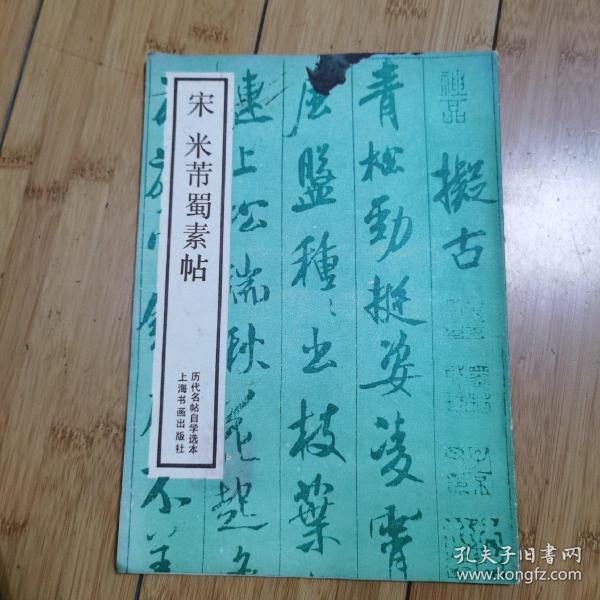 宋 米芾蜀素帖
历代名帖自学选本
上海书画出版社
神品
擬古
青松勁挺姿凌霄
屈盤種〻出枝葉
連上松端秋花起
不
孔夫子旧书网
www.kongfz.com